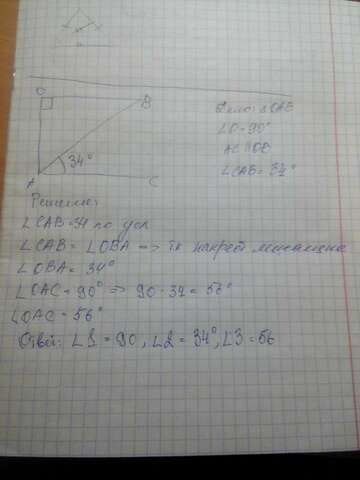 O
B
34°
A
C
Дано: △OAB
∠O = 90°
AC || OB
∠CAB = 34°
Решение:
∠CAB = 34 по усл
∠CAB = ∠OBA => тк накрест лежащие
∠OBA = 34°
∠OAC = 90° => 90 - 34 = 56°
∠OAC = 56°
Ответ: ∠1 = 90, ∠2 = 34°, ∠3 = 56